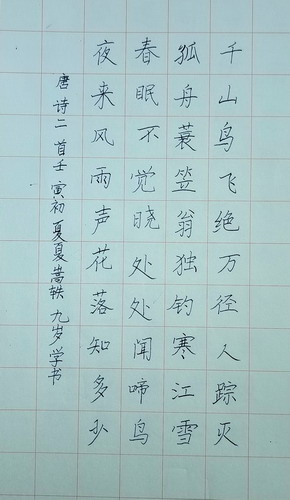 千山鸟飞绝万径人踪灭
孤舟蓑笠翁独钓寒江雪
春眠不觉晓处处闻啼鸟
夜来风雨声花落知多少
唐诗二首壬寅初夏夏蒿轶九岁学书